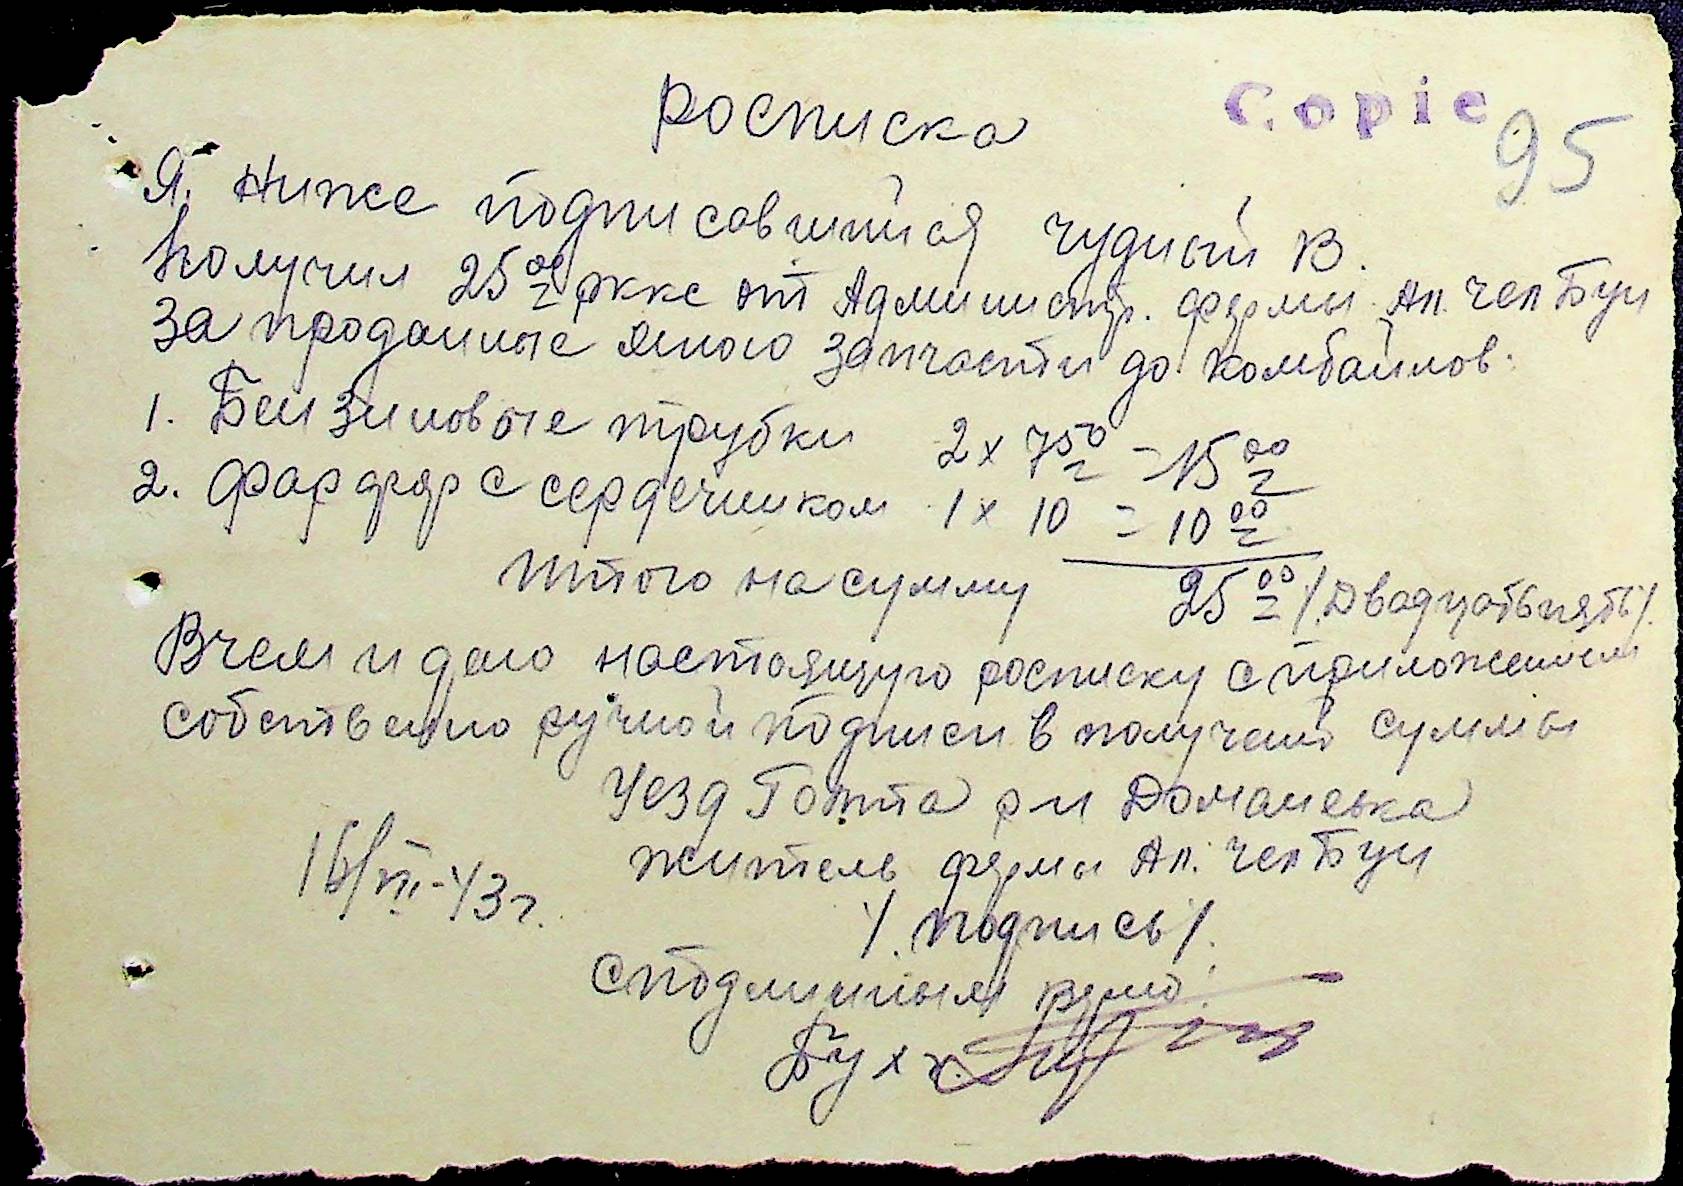 Росписка
Copie
95
Я, ниже подписавшийся Чудный В.
получил 25 00 рккс от Администр. фермы Ап. Чел Бун
за проданные мною запчасти до комбайнов:
1. Бензиновые трубки 2 x 7 50 = 15 00
2. Фарфор с сердечником 1 x 10 = 10 00
Итого на сумму 25 00 /.Двадцать пять/.
В чем и даю настоящую росписку с приложением
собственно ручной подписи в получении суммы
Уезд Голта р-н Доманевка
житель фермы Ап. Чел Бун
16/VIII-43 г.
/. подпись /.
С подлинным верно:
Бух